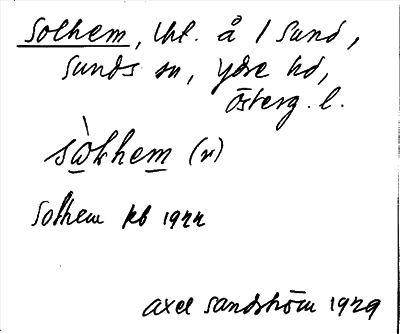 Solhem, lht. å 1 Sund,
Sunds sn, Ydre hd,
Österg. l.
sòlhem (n)
Solhem kb 1922
Axel Sandström 1929